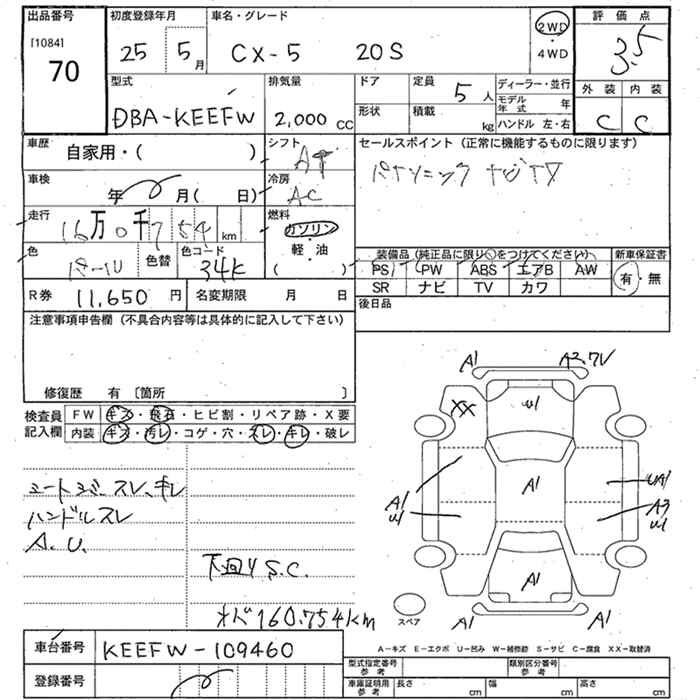 出品番号 初度登録年月 車名・グレード 2WD 評価点
[1084] 25 5 月 CX-5 20S ・ 3.5
70 4WD
型式 排気量 ドア 定員 5 人 ディーラー・並行 外装 内装
DBA-KEEFW 2,000 CC 形状 積載 kg モデル年式 年 C C
ハンドル 左・右
車歴 自家用・( ) シフト AT セールスポイント (正常に機能するものに限ります)
車検 年 月( 日) 冷房 AC パナソニック ナビTV
走行 16万0千754 km 燃料 ガソリン・軽・油 ( )
色 パール 色替 色コード 34K
装備品 (純正品に限り○をつけてください) 新車保証書
PS PW ABS エアB AW 有・無
SR ナビ TV カワ
R券 11,650 円 名変期限 月 日 後日品
注意事項申告欄 (不具合内容等は具体的に記入して下さい)
修復歴 有 〔箇所 〕
検査員 FW キズ・飛石・ヒビ割・リペア跡・X要
記入欄 内装 キズ・汚レ・コゲ・穴・スレ・キレ・破レ
シートシミ、スレ、キレ
ハンドルスレ
A.U.
下回りS.C.
メド160.754km
A1 A2,7V
XX U1
A1 U1 A1 UA1
A3 U1
A1
A1 A1
スペア
A-キズ E-エクボ U-凹み W-補修跡 S-サビ C-腐食 XX-取替済
車台番号 KEEFW-109460
登録番号
型式指定番号 参考 類別区分番号 参考
車庫証明用 参考 長さ cm 幅 cm 高さ cm